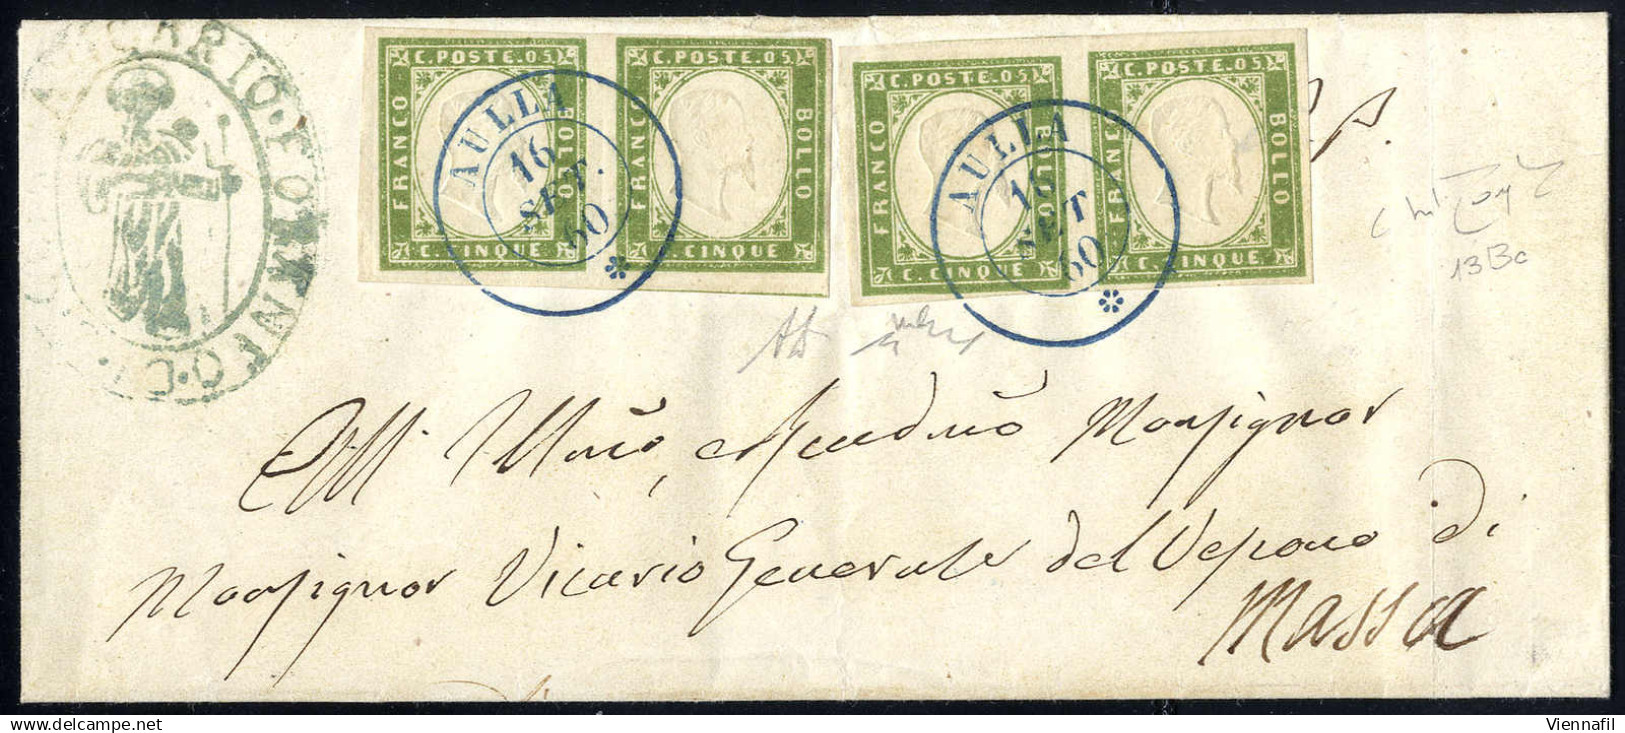 VICARIO·FORANEO·DI
C. POSTE. 05.
FRANCO
BOLLO
C. CINQUE
C. POSTE. 05.
FRANCO
BOLLO
C. CINQUE
C. POSTE. 05.
FRANCO
BOLLO
C. CINQUE
C. POSTE. 05.
FRANCO
BOLLO
C. CINQUE
AULLA
16
SET.
60
AULLA
16
SET
60
13Bc
All' Illmo, e Rendmo Monsignor
Monsignor Vicario Generale del Vescovo di
Massa
Viennafil